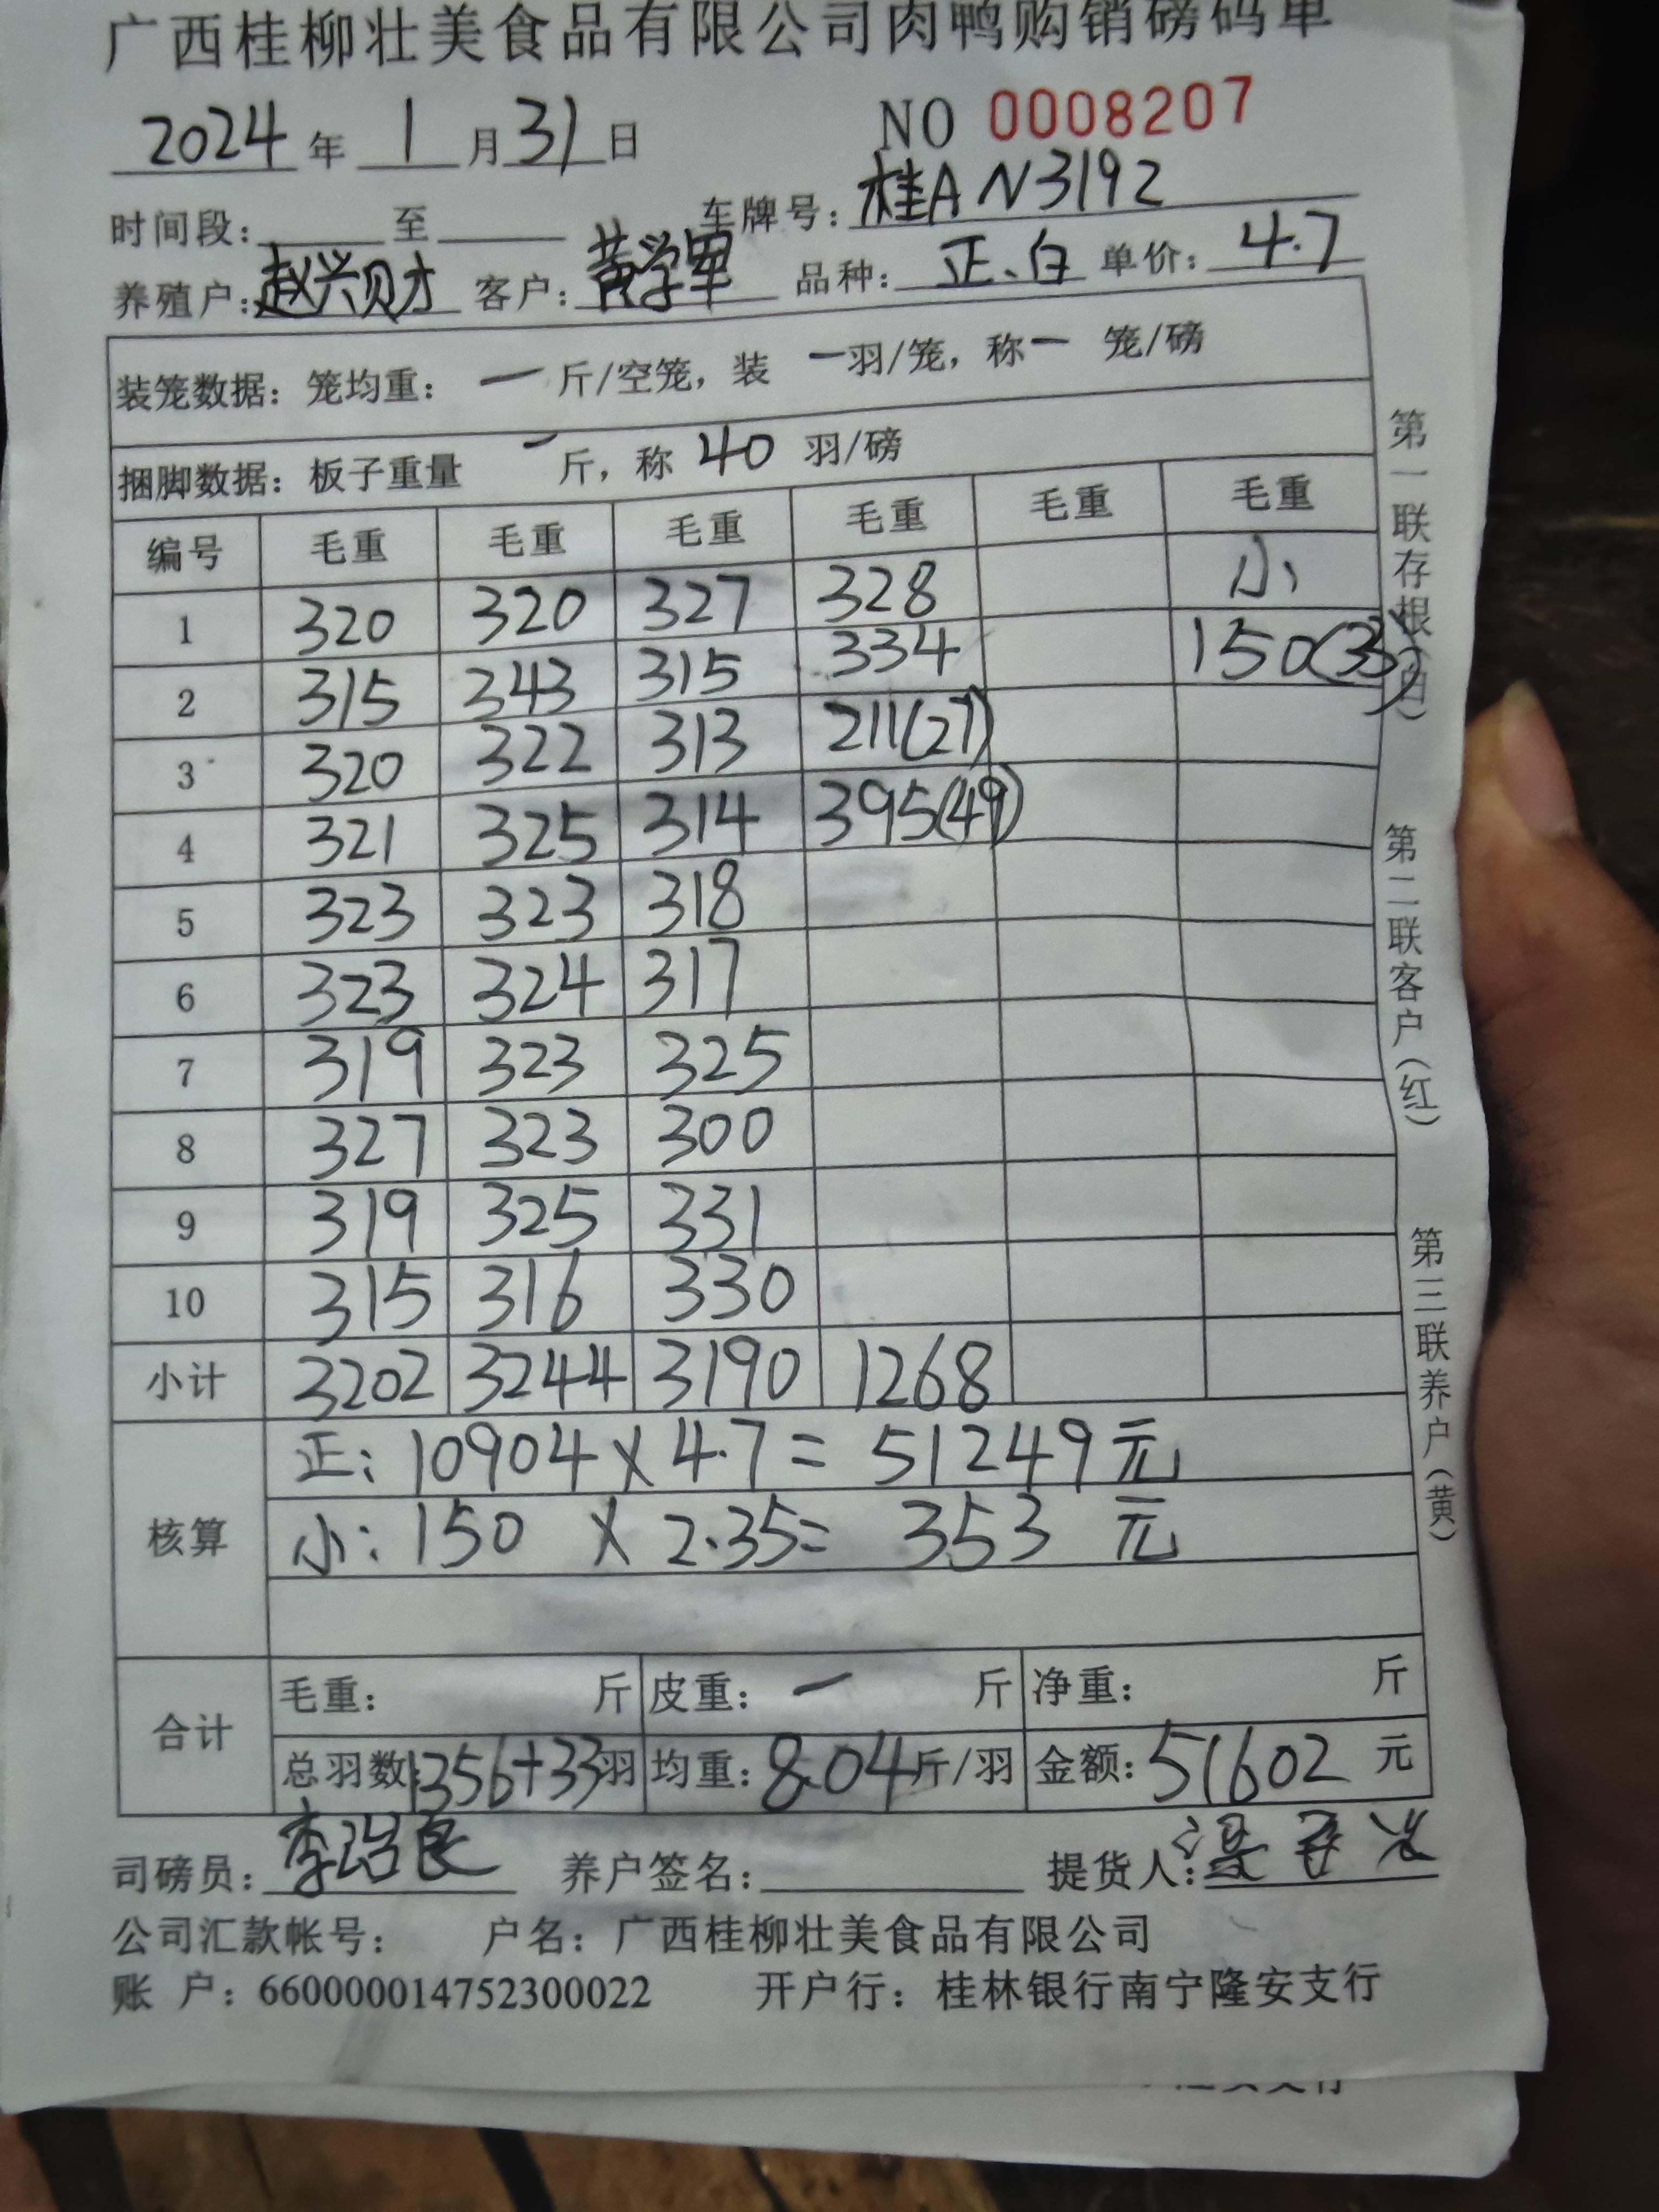 广西桂柳壮美食品有限公司肉鸭购销磅码单
2024 年 1 月 31 日 NO 0008207
时间段: 至 车牌号: 桂A N3192
养殖户: 赵兴财 客户: 黄学军 品种: 正、白 单价: 4.7
装笼数据: 笼均重: 一 斤/空笼, 装 一 羽/笼, 称 一 笼/磅
捆脚数据: 板子重量 一 斤, 称 40 羽/磅
编号 毛重 毛重 毛重 毛重 毛重 毛重
1 320 320 327 328 小
2 315 343 315 334 150(33)
3 320 322 313 211(27)
4 321 325 314 395(49)
5 323 323 318
6 323 324 317
7 319 323 325
8 327 323 300
9 319 325 331
10 315 316 330
小计 3202 3244 3190 1268
核算
正: 10904 X 4.7 = 51249 元
小: 150 X 2.35= 353 元
合计
毛重: 斤 皮重: 一 斤 净重: 斤
总羽数: 1356+33 羽 均重: 8.04 斤/羽 金额: 51602 元
司磅员: 李 良 养户签名: 提货人:
公司汇款帐号: 户名: 广西桂柳壮美食品有限公司
账 户: 660000014752300022 开户行: 桂林银行南宁隆安支行
第一联存根(白)
第二联客户(红)
第三联养户(黄)